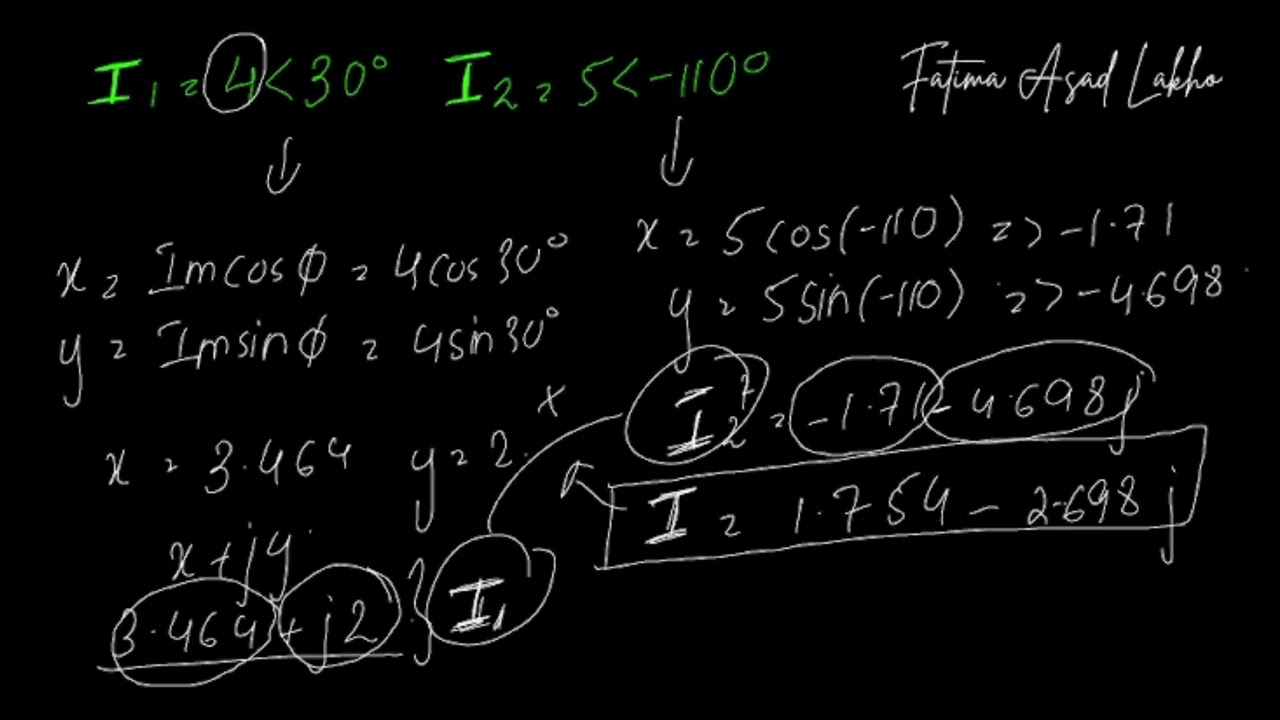 I₁ = 4<30° I₂ = 5<-110°
Fatima Asad Lakho
x = Imcosϕ = 4cos30°
y = Imsinϕ = 4sin30°
x = 3.464 y = 2.
x+jy
3.464+j2 } I₁
x = 5cos(-110) => -1.71
y = 5sin(-110) => -4.698
+
I₂ = -1.71-4.698j
I = 1.754 - 2.698j